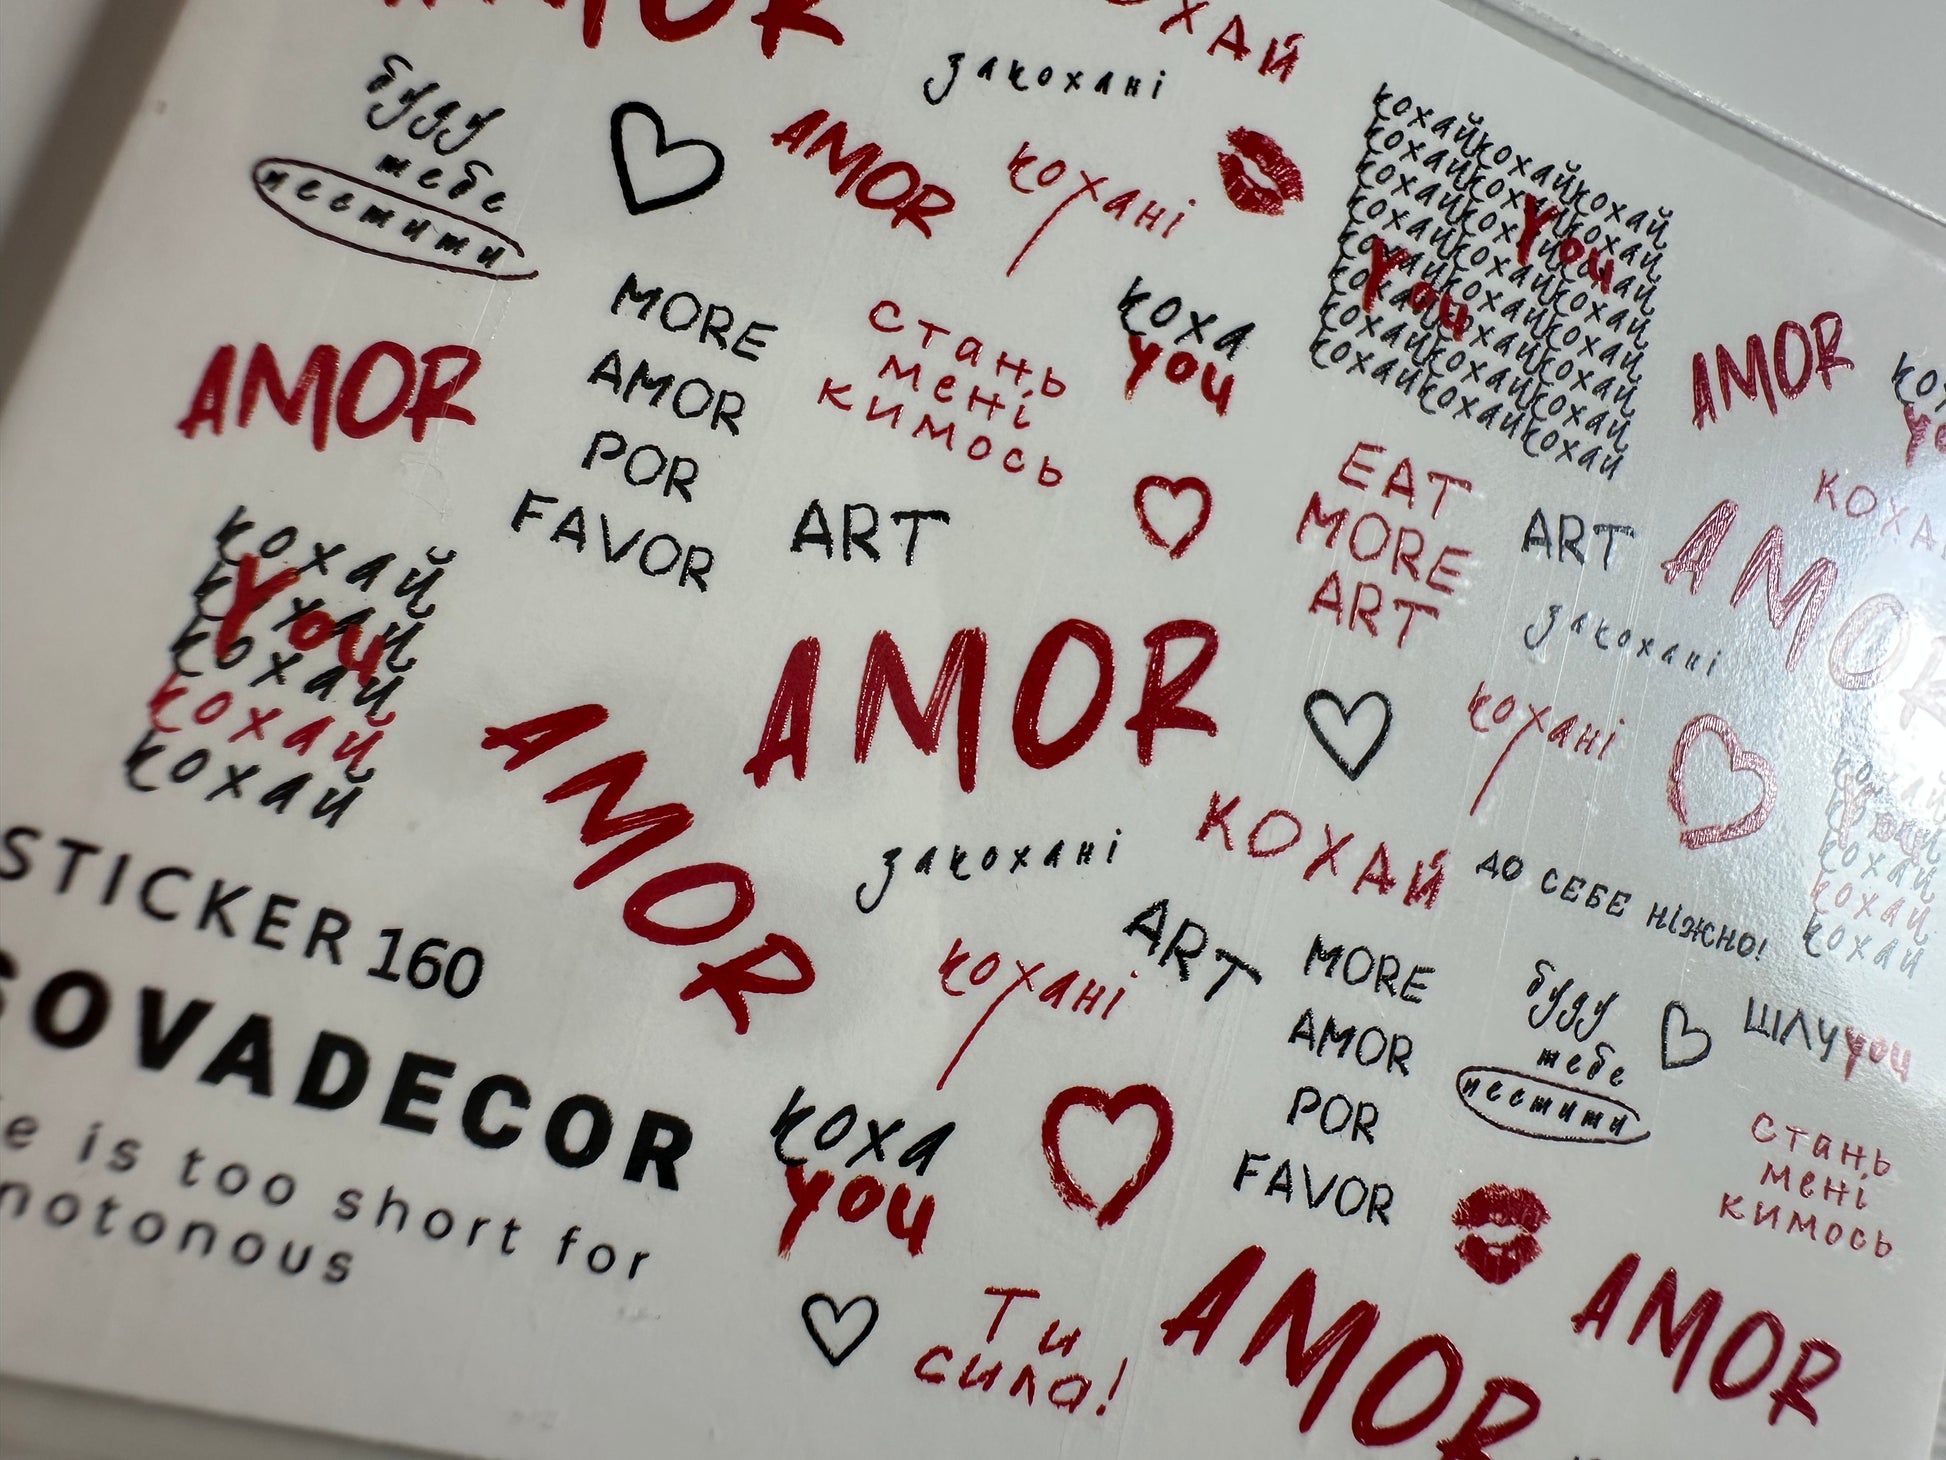 AMOR
КОХАЙ
закохані
буду
тебе
пестити
AMOR
кохані
кохайкохайкохай
кохайкохайкохай
кохайкохайкохай
You
кохайкохайкохай
You
кохайкохайкохай
кохайкохайкохай
кохайкохайкохай
кохайкохайкохай
MORE
AMOR
POR
FAVOR
стань
мені
кимось
коха
you
AMOR
AMOR
EAT
MORE
ART
ART
ART
КОХА
AMOR
закохані
кохай
You
кохай
кохай
кохай
кохай
AMOR
AMOR
кохані
КОХАЙ
закохані
ДО СЕБЕ НІЖНО!
кохай
кохай
кохай
кохай
STICKER 160
SOVADECOR
e is too short for
notonous
кохані
ART
MORE
AMOR
POR
FAVOR
буду
тебе
пестити
ЦІЛУyou
стань
мені
кимось
коха
you
Ти
сила!
AMOR
AMOR